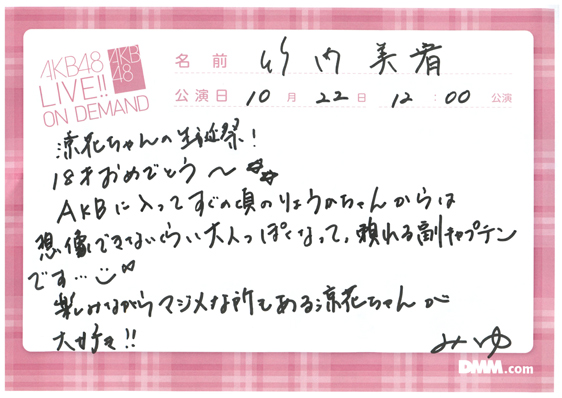 AKB48
LIVE!!
ON DEMAND
AKB
48
名前 竹内美宥
公演日 10月22日 12:00 公演
涼花ちゃんの生誕祭!
18才おめでとう〜☆☆
AKBに入ってすぐの頃のりょうかちゃんからは
想像できないくらい大人っぽくなって、頼れる副キャプテン
です…
楽しみながらマジメな所もある涼花ちゃんが
大好き!!
みゆ
DMM.com